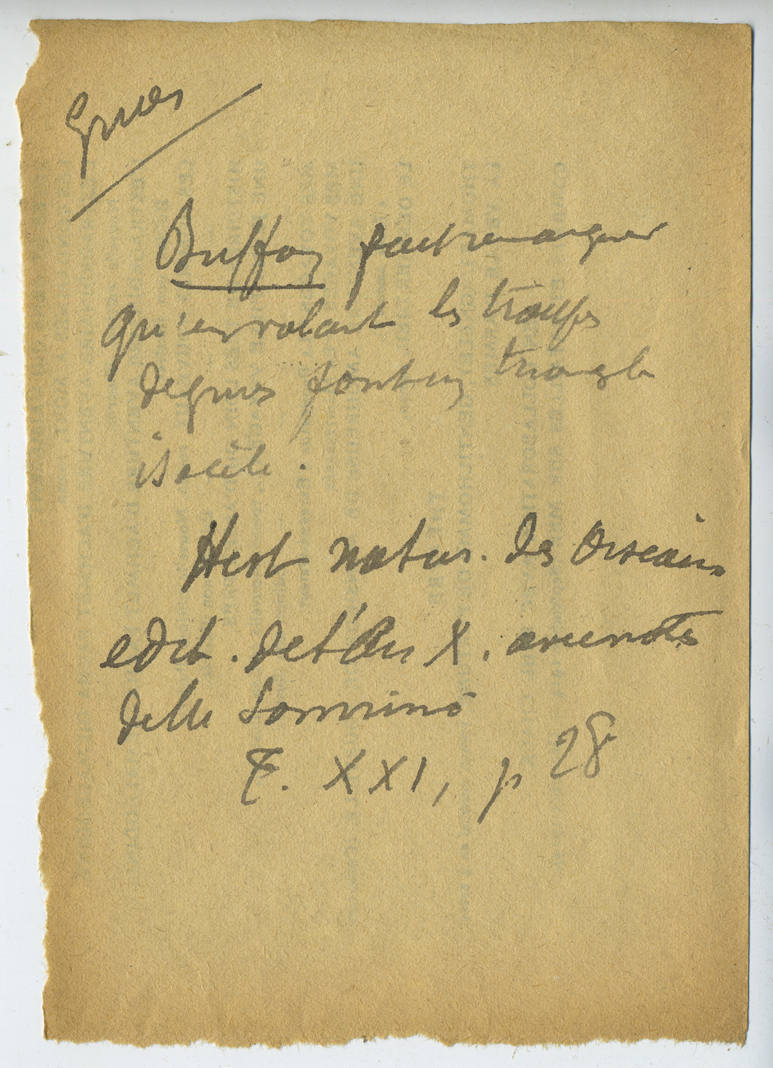 Grues
Buffon fait remarquer
qu'en volant les troupes
de grues font un triangle
isocèle.
Hist natur. des Oiseaux
edit. de l'An X. avec notes
de Sonnini
T. XXI, p 28